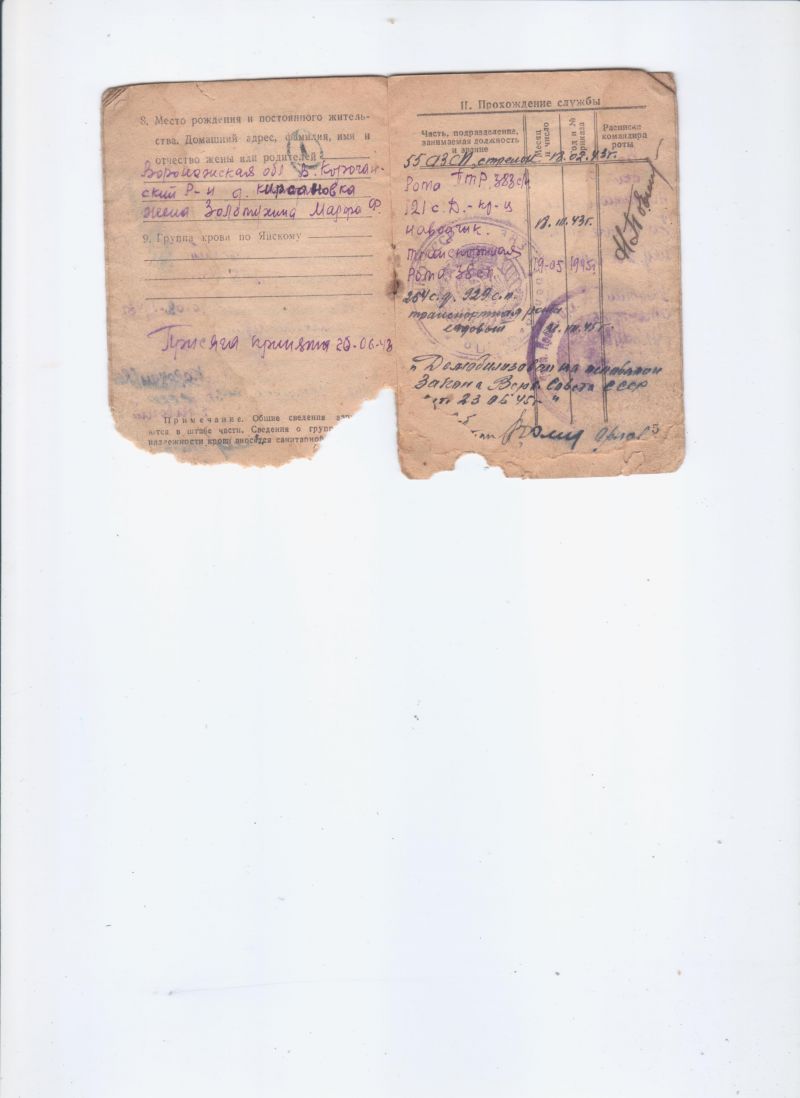 8. Место рождения и постоянного житель-
ства. Домашний адрес, фамилия, имя и
отчество жены или родителей
Воронежская обл В. Корочан-
ский Р-н д. Кирсановка
жена Золотухина Марфа Ф.
9. Группа крови по Янскому
Присяга принята 23-06-43
Примечание. Общие сведения
ются в штабе части. Сведения о груп
надлежности крови вносятся санитарной
II. Прохождение службы
Часть, подразделение, занимаемая должность и звание
Месяц и число
Год и № приказа
Расписка командира роты
55 АЗСП, стрелок 18.02.43г.
Рота ПТР 383 сп
121 с. Д. - кр-ц
наводчик. 18.III.43г.
транспортная
Рота 38 сп. 19-05 1945г
254 с.д. 929 с.п.
транспортная рота
ездовый 31.III.45г.
"Демобилизован на основании
Закона Верх. Совета СССР
от 23 06 45- "
5